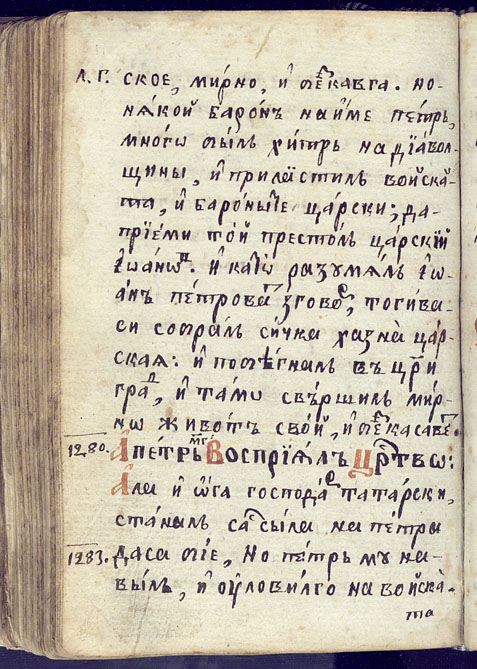 л.г. ское, мирно, и без кавга. но-
някой баронъ на име петръ,
много былъ хитръ на дїавол-
щины, и прилестилъ войска-
та, и бароныте царски; да
прїеми той престолъ царскїй
їѡанѡв. и като разумялъ їѡ-
анъ петровата зговор, тогива
си собралъ сичка хазна цар-
ская: и побѣгналъ въ цари
град, и тамо свършилъ мир-
но животъ свой, и без касавет.
1280. А петръ Воспрїялъ Црство:
Али и ѡга господар татарски,
станалъ са сила на петра
1283. даса бїе, но петръ му на-
вылъ, и оуловилго на войска-
та